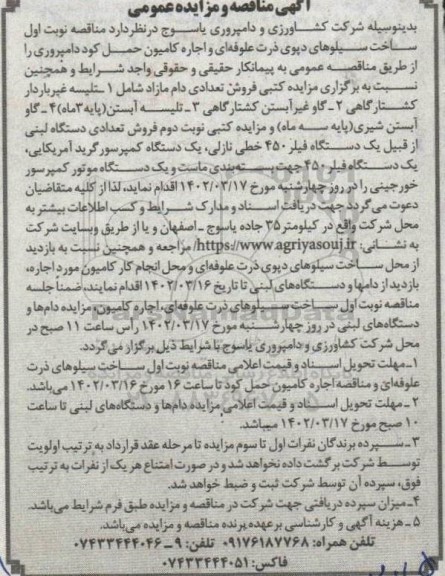 آگهی مناقصه و مزایده عمومی
بدینوسیله شرکت کشاورزی و دامپروری یاسوج درنظردارد مناقصه نوبت اول
ساخت سیلوهای دپوی ذرت علوفه‌ای و اجاره کامیون حمل کود دامپروری را
از طریق مناقصه عمومی به پیمانکار حقیقی و حقوقی واجد شرایط و همچنین
نسبت به برگزاری مزایده کتبی فروش تعدادی دام مازاد شامل ۱ـ تلیسه غیرباردار
کشتارگاهی ۲ـ گاو غیرآبستن کشتارگاهی ۳ـ تلیسه آبستن(پابه۳ماه) ۴ـ گاو
آبستن شیری(پابه سه ماه) و مزایده کتبی نوبت دوم فروش تعدادی دستگاه لبنی
از قبیل یک دستگاه فیلر ۴۵۰ خطی نازلی، یک دستگاه کمپرسور گرید آمریکایی،
یک دستگاه فیلر ۴۵۰ جهت بسته‌بندی ماست و یک دستگاه موتور کمپرسور
خورجینی را در روز چهارشنبه مورخ ۱۴۰۲/۰۳/۱۷ اقدام نماید، لذا از کلیه متقاضیان
دعوت می‌گردد جهت دریافت اسناد و مدارک شرایط و کسب اطلاعات بیشتر به
محل شرکت واقع در کیلومتر ۳۵ جاده یاسوج ـ اصفهان و یا از طریق وبسایت شرکت
به نشانی: https://www.agriyasouj.ir/ مراجعه و همچنین نسبت به بازدید
از محل ساخت سیلوهای دپوی ذرت علوفه‌ای و محل انجام کار کامیون مورد اجاره،
بازدید از دامها و دستگاه‌های لبنی تا تاریخ ۱۴۰۲/۰۳/۱۶ اقدام نمایند، ضمنا جلسه
مناقصه نوبت اول ساخت سیلوهای ذرت علوفه‌ای، اجاره کامیون و مزایده دام‌ها و
دستگاه‌های لبنی در روز چهارشنبه مورخ ۱۴۰۲/۰۳/۱۷ رأس ساعت ۱۱ صبح در
محل شرکت کشاورزی و دامپروری یاسوج با شرایط ذیل برگزار می‌گردد.
۱ـ مهلت تحویل اسناد و قیمت اعلامی مناقصه نوبت اول ساخت سیلوهای ذرت
علوفه‌ای و مناقصه اجاره کامیون حمل کود تا ساعت ۱۶ مورخ ۱۴۰۲/۰۳/۱۶ می‌باشد.
۲ـ مهلت تحویل اسناد و قیمت اعلامی مزایده دام‌ها و دستگاه‌های لبنی تا ساعت
۱۰ صبح مورخ ۱۴۰۲/۰۳/۱۷ میباشد.
۳ـ سپرده برندگان نفرات اول تا سوم مزایده تا مرحله عقد قرارداد به ترتیب اولویت
توسط شرکت برگشت داده نخواهد شد و در صورت امتناع هر یک از نفرات به ترتیب
فوق، سپرده آن توسط شرکت ثبت و ضبط خواهد شد.
۴ـ میزان سپرده دریافتی جهت شرکت در مناقصه و مزایده طبق فرم شرایط می‌باشد.
۵ـ هزینه آگهی و کارشناسی برعهده برنده مناقصه و مزایده می‌باشد.
تلفن همراه: ۰۹۱۷۶۱۸۷۷۶۸ تلفن: ۹ـ۰۷۴۳۳۴۴۴۰۴۶
فاکس: ۰۷۴۳۳۴۴۴۰۵۱